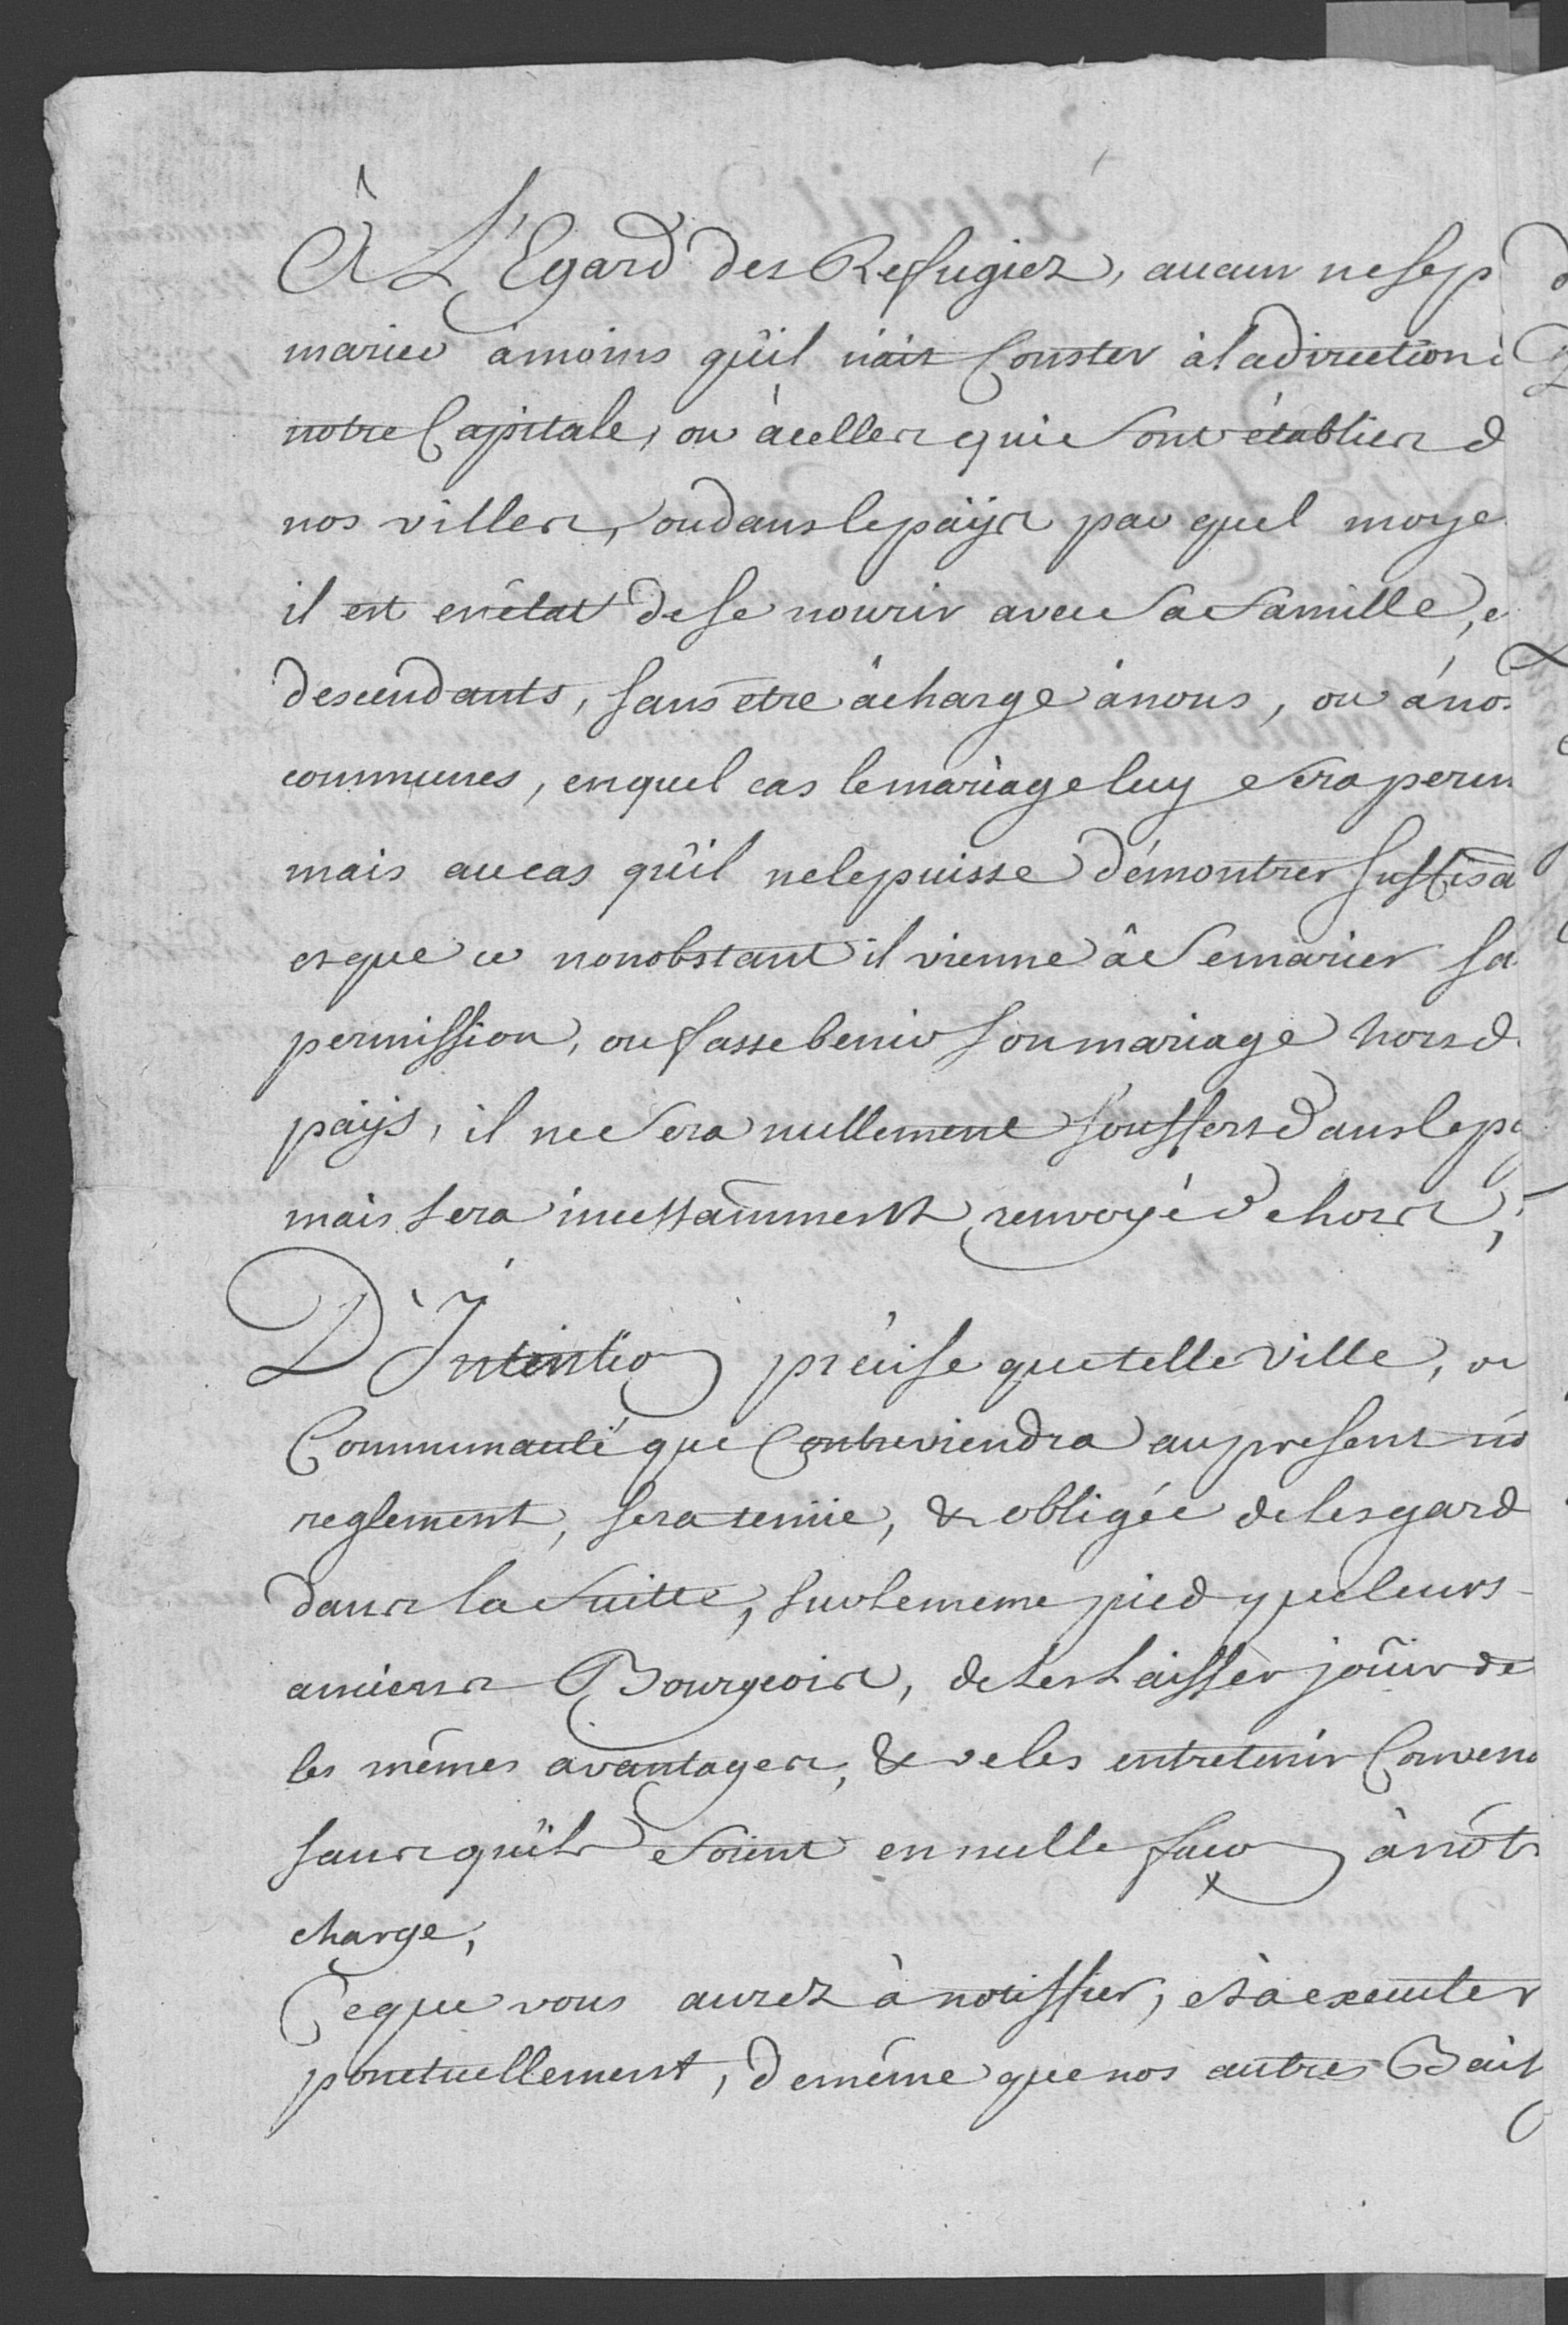 À L'Egard des Refugiez, aucun ne se p
marier à moins qu'il n'ait Conster à la direction
notre Capitale, ou à celles qui Sont établies d
nos villes, ou dans le päijs par quel moye
il est en état de se nourir avec Sa famille, e
descendants, sans etre à charge à nous, ou à nos
communes, en quel cas le mariage luy Sera perm
mais au cas qu'il ne le puisse démontrer suffisa
et que ce nonobstant il vienne à Se marier sa
permission, ou fasse benir son mariage hors d
päijs, il ne Sera nullement souffert dans le pa
mais sera incessamment renvoyé dehors;
D'Intention précise que telle ville, ou
Communauté que Contreviendra au present nô
reglement, sera tenüe, & obligée de les gard
dans la Suitte, sur le meme pied que leurs
anciens Bourgeois, de les Laisser joüir de
les mêmes avantages, & de les entretenir Conven
sans qu'ils Soient en nulle facon à nôt
charge,
Ce que vous aurez à notiffier, et à executer
ponctuellement, de même que nos autres Bail